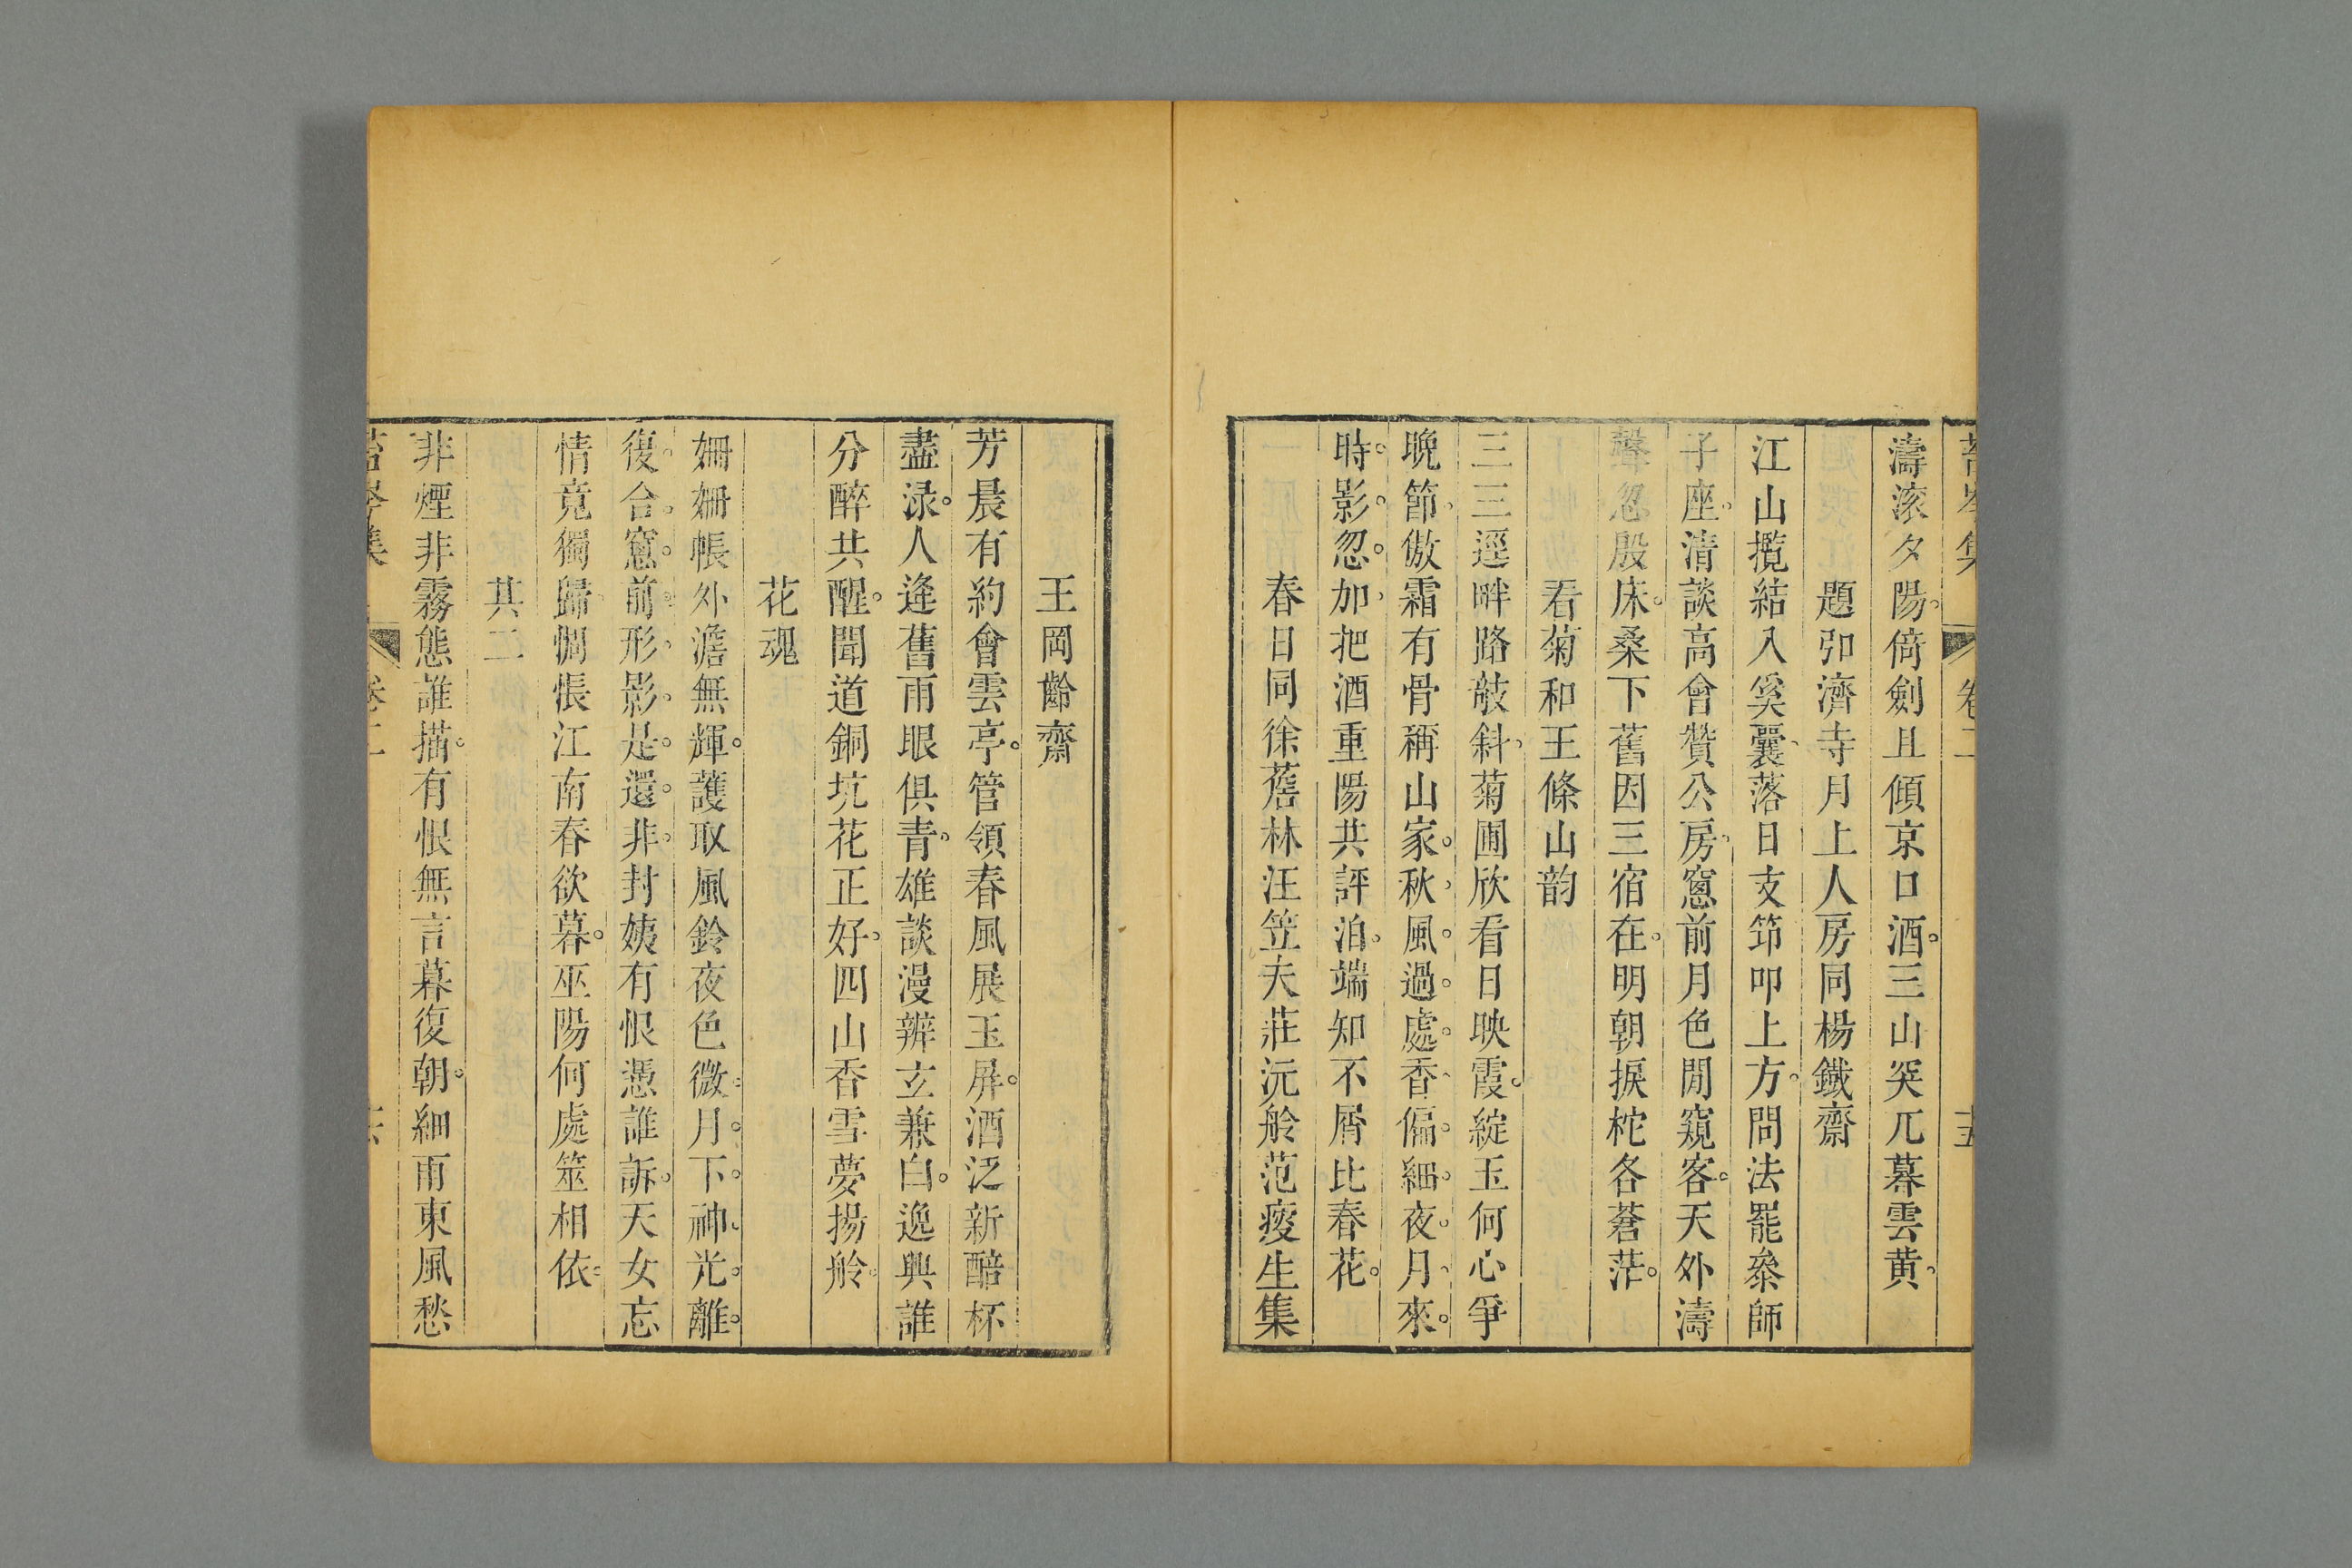 濤滚夕陽。倚劍且傾京口酒。三山突兀暮雲黄。
題弘濟寺月上人房同楊鐵齋
江山攬結入奚囊。落日支笻叩上方。問法罷叅師
子座。清談高會贊公房。窻前月色閒窺客。天外濤
聲忽殷床。桑下舊因三宿在。明朝捩柁各蒼茫。
看菊和王條山韵
三三逕畔路敧斜。菊圃欣看日映霞。綻玉何心爭
晩節。傲霜有骨稱山家。秋風過處香偏細。夜月來
時影忽加。把酒重陽共評泊。端知不屑比春花。
春日同徐蘑林汪笠夫莊沅舲范痠生集
王岡齡齋
芳晨有約會雲亭。管領春風展玉屏。酒泛新醅杯
盡渌。人逢舊雨眼俱青。雄談漫辨玄兼白。逸興誰
分醉共醒。聞道銅坑花正好。四山香雪夢揚舲。
花魂
姍姍帳外澹無輝。護取風鈴夜色微。月下神光離
復合。窻前形影是還非。封姨有恨憑誰訴。天女忘
情竟獨歸。惆悵江南春欲暮。巫陽何處筮相依。
其二
非煙非霧態誰描。有恨無言暮復朝。細雨東風愁